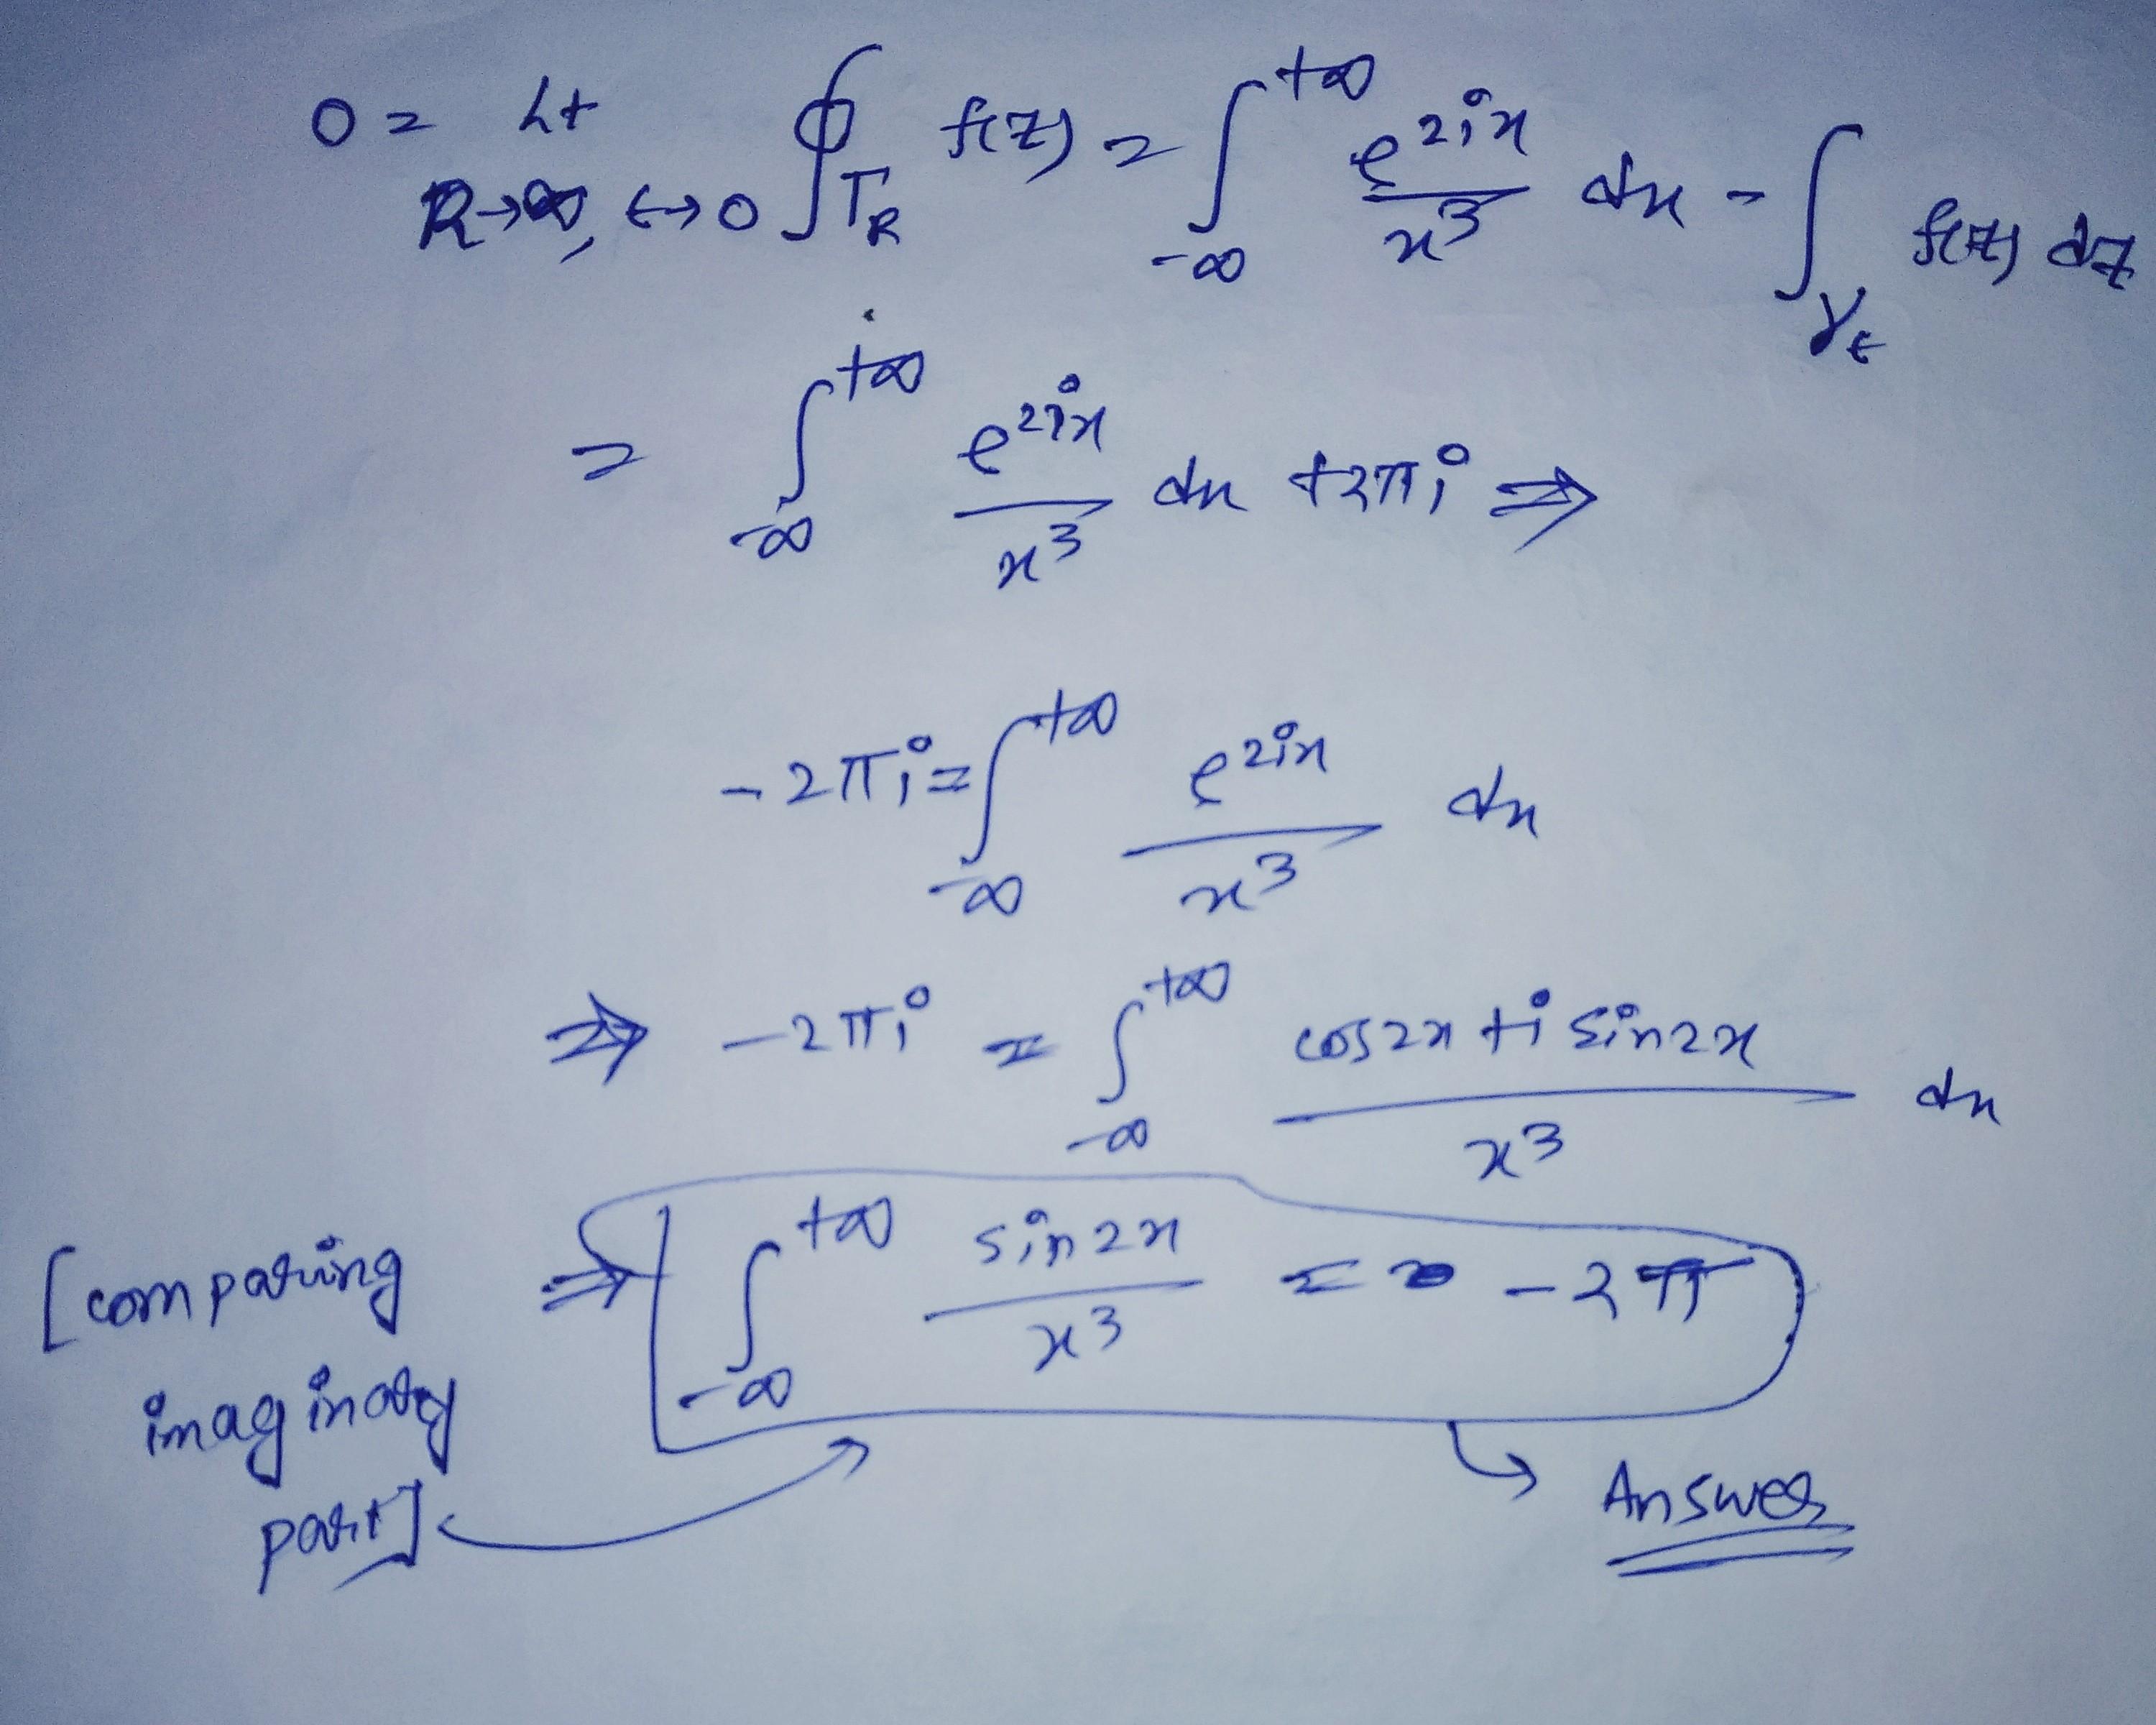 0 = Lt R→∞, ϵ→0 ∮_{Γ_R} f(z) = ∫_{-∞}^{+∞} e^{2ix}/x^3 dx - ∫_{γ_ϵ} f(z) dz
= ∫_{-∞}^{+∞} e^{2ix}/x^3 dx + 2πi ⇒
-2πi = ∫_{-∞}^{+∞} e^{2ix}/x^3 dx
⇒ -2πi = ∫_{-∞}^{+∞} cos2x + i sin2x / x^3 dx
[comparing imaginary part] ⇒ ∫_{-∞}^{+∞} sin2x/x^3 = -2π
Answer